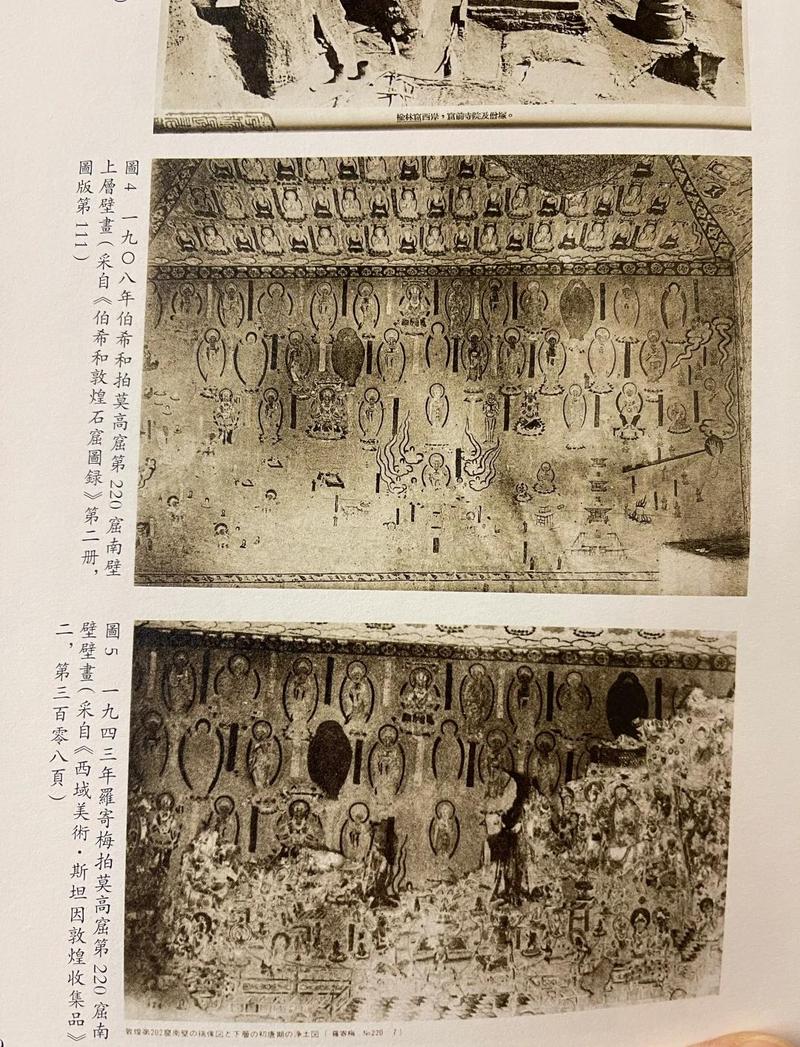 榆林窟西岸，窟前寺院及僧塚。
圖4　一九〇八年伯希和拍莫高窟第220窟南壁
上層壁畫（采自《伯希和敦煌石窟圖録》第二册，
圖版第111）
圖5　一九四三年羅寄梅拍莫高窟第220窟南
壁壁畫（采自《西域美術·斯坦因敦煌收集品》
二，第三百零八頁）
敦煌第202窟南壁の瑞像図と下層の初唐期の浄土図（羅寄梅 No220 7）